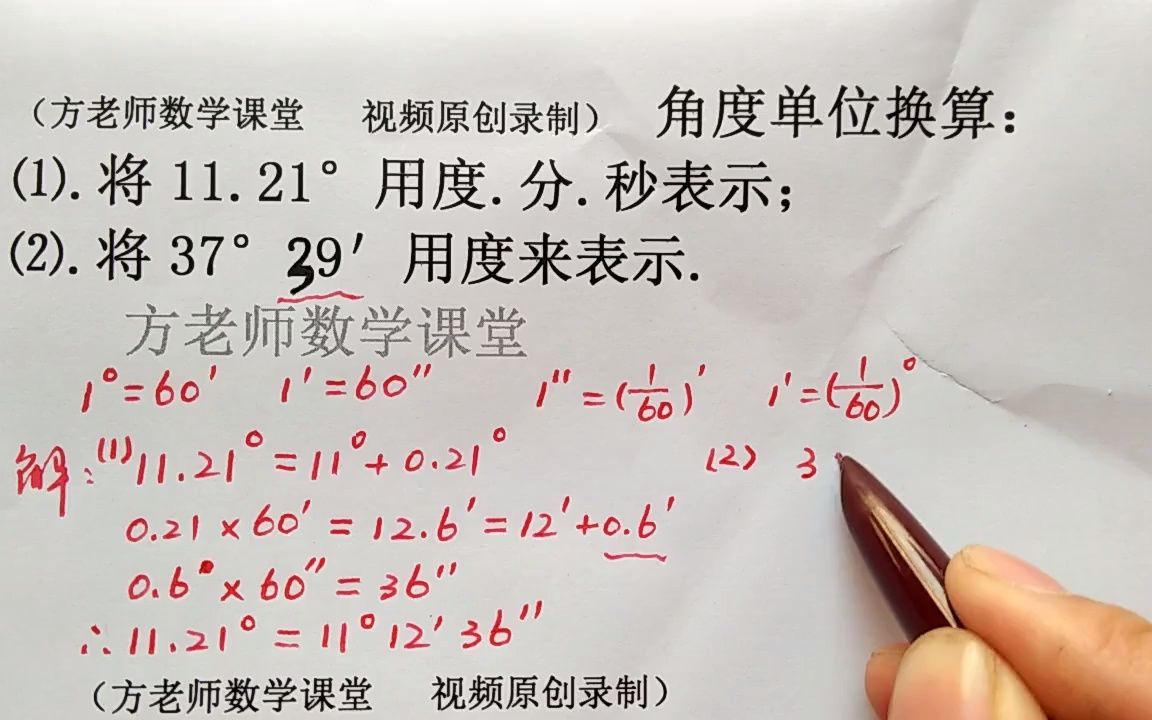 （方老师数学课堂 视频原创录制） 角度单位换算：
⑴. 将 11.21° 用度. 分. 秒表示；
⑵. 将 37° 39′ 用度来表示.
方老师数学课堂
1°=60′ 1′=60″ 1″=(1/60)′ 1′=(1/60)°
解：(1) 11.21°=11°+0.21° (2) 3
0.21×60′=12.6′=12′+0.6′
0.6×60″=36″
∴11.21°=11°12′36″
（方老师数学课堂 视频原创录制）